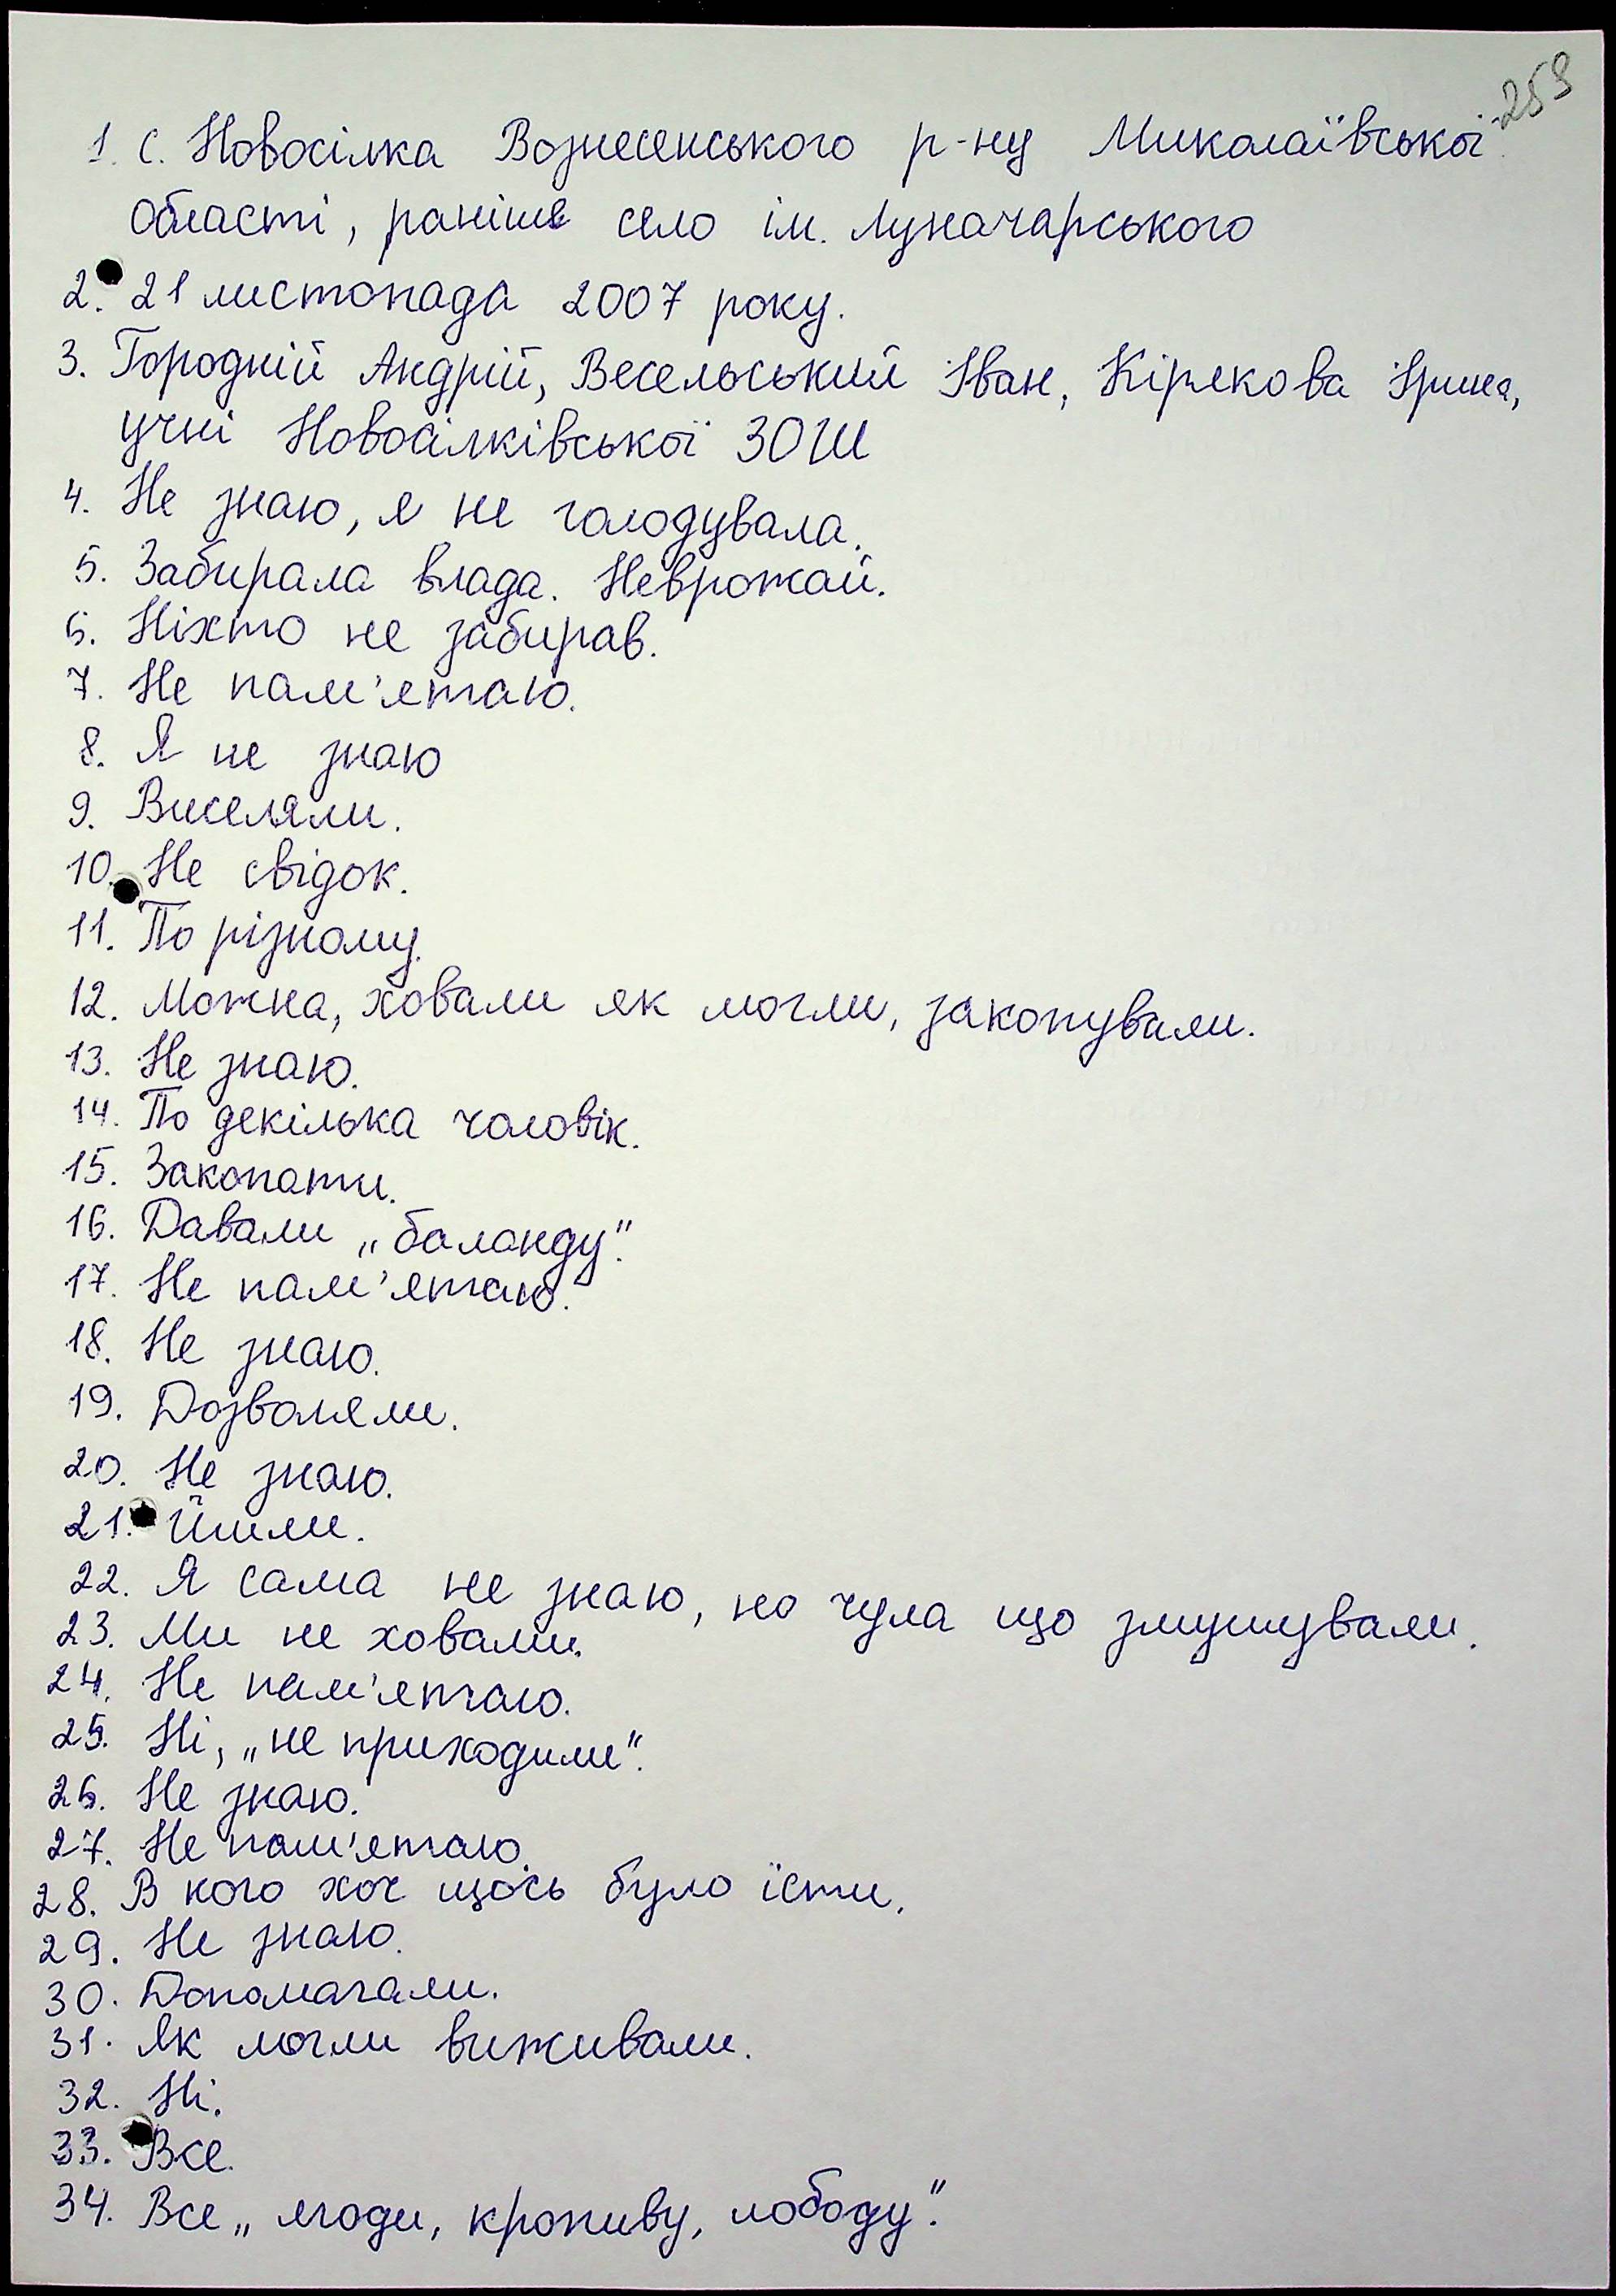 259
1. с. Новосілка Вознесенського р-ну Миколаївської
області, раніше село ім. Луначарського
2. 21 листопада 2007 року.
3. Городній Андрій, Весельський Іван, Кірякова Ірина,
учні Новосілківської ЗОШ
4. Не знаю, я не голодувала.
5. Забирала влада. Неврожай.
6. Ніхто не забирав.
7. Не пам'ятаю.
8. Я не знаю
9. Виселяли.
10. Не свідок.
11. По різному.
12. Можна, ховали як могли, закопували.
13. Не знаю.
14. По декілька чоловік.
15. Закопати.
16. Давали „баланду".
17. Не пам'ятаю.
18. Не знаю.
19. Дозволяли.
20. Не знаю.
21. Йшли.
22. Я сама не знаю, но чула що змушували.
23. Ми не ховали.
24. Не пам'ятаю.
25. Ні, „не приходили".
26. Не знаю.
27. Не пам'ятаю.
28. В кого хоч щось було їсти.
29. Не знаю.
30. Допомагали.
31. Як могли виживали.
32. Ні.
33. Все.
34. Все „ ягоди, кропиву, лободу".